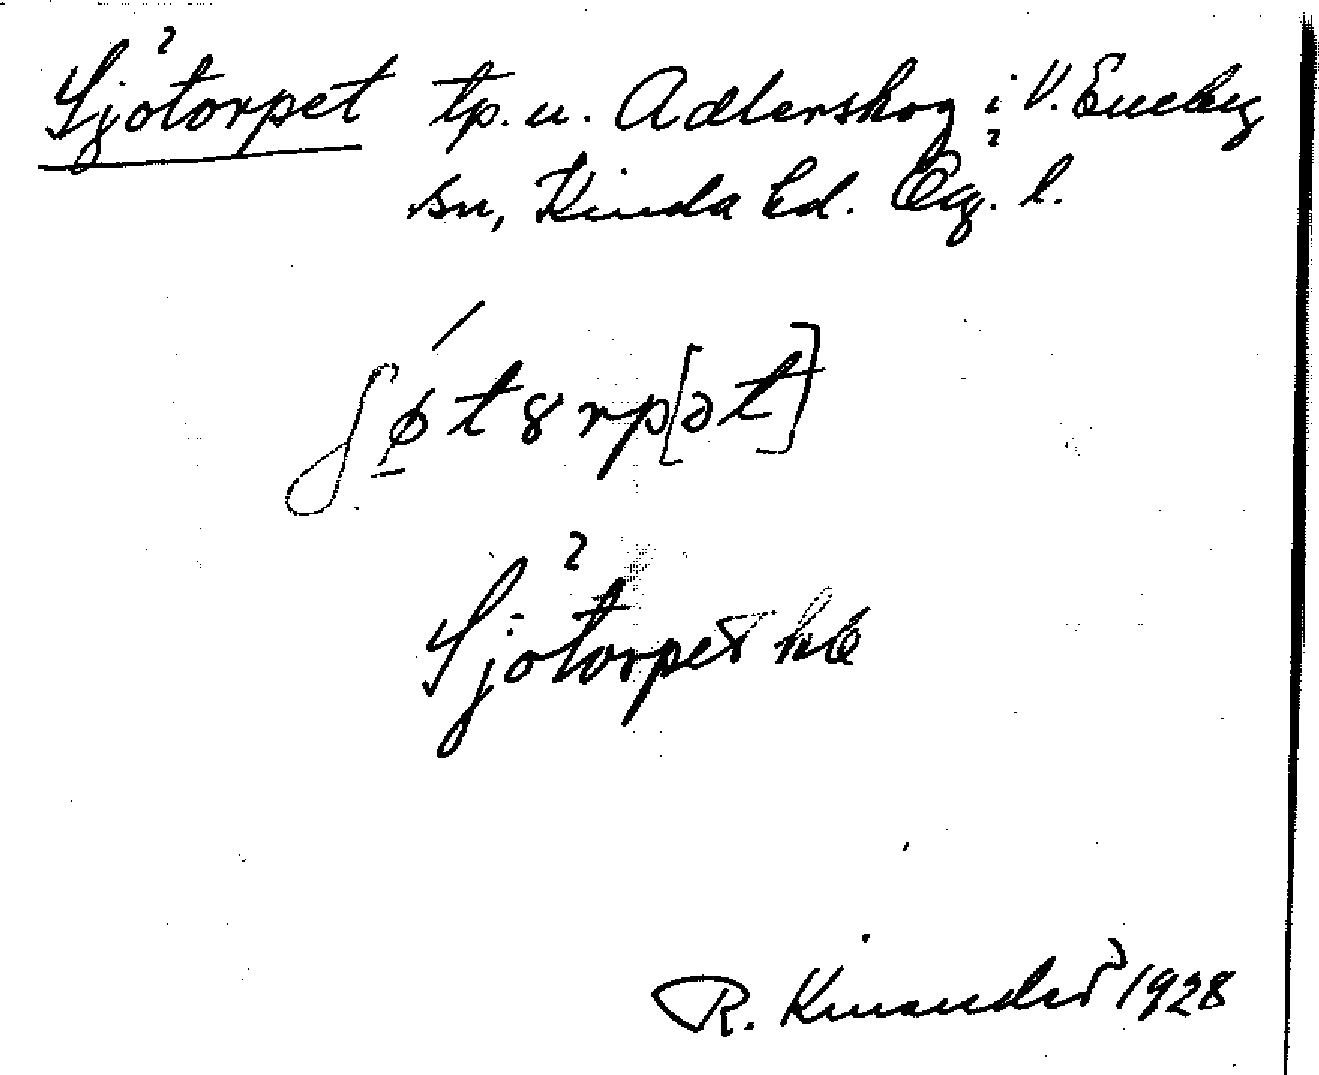 Sjötorpet tp. u. Adlerskog i V. Eneby
sn, Kinda hd. Ög. l.
ʃǿ̠tɤrp[ət]
Sjötorpet hb
R. Kinander 1928